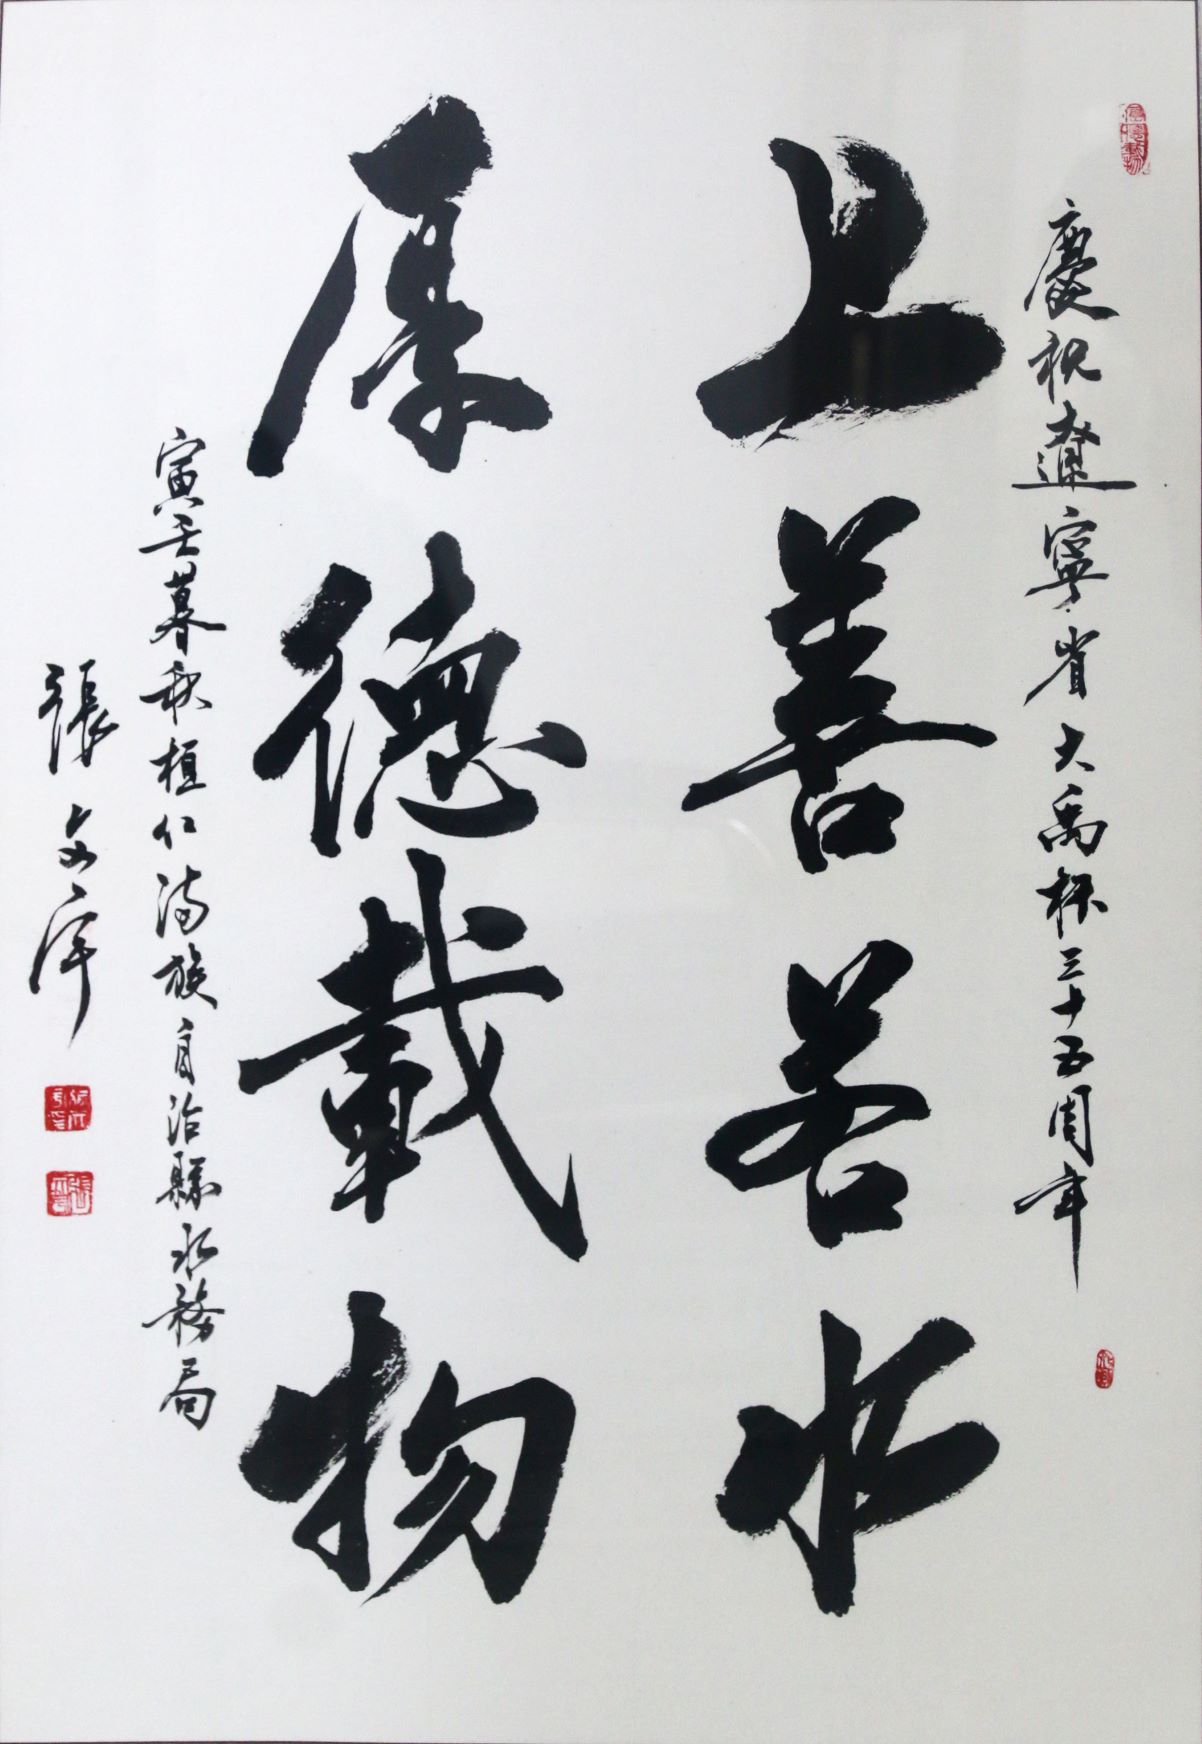 慶祝遼寧省大禹杯三十五周年
上善若水
厚德載物
寅壬暮秋桓仁满族自治縣水務局
張